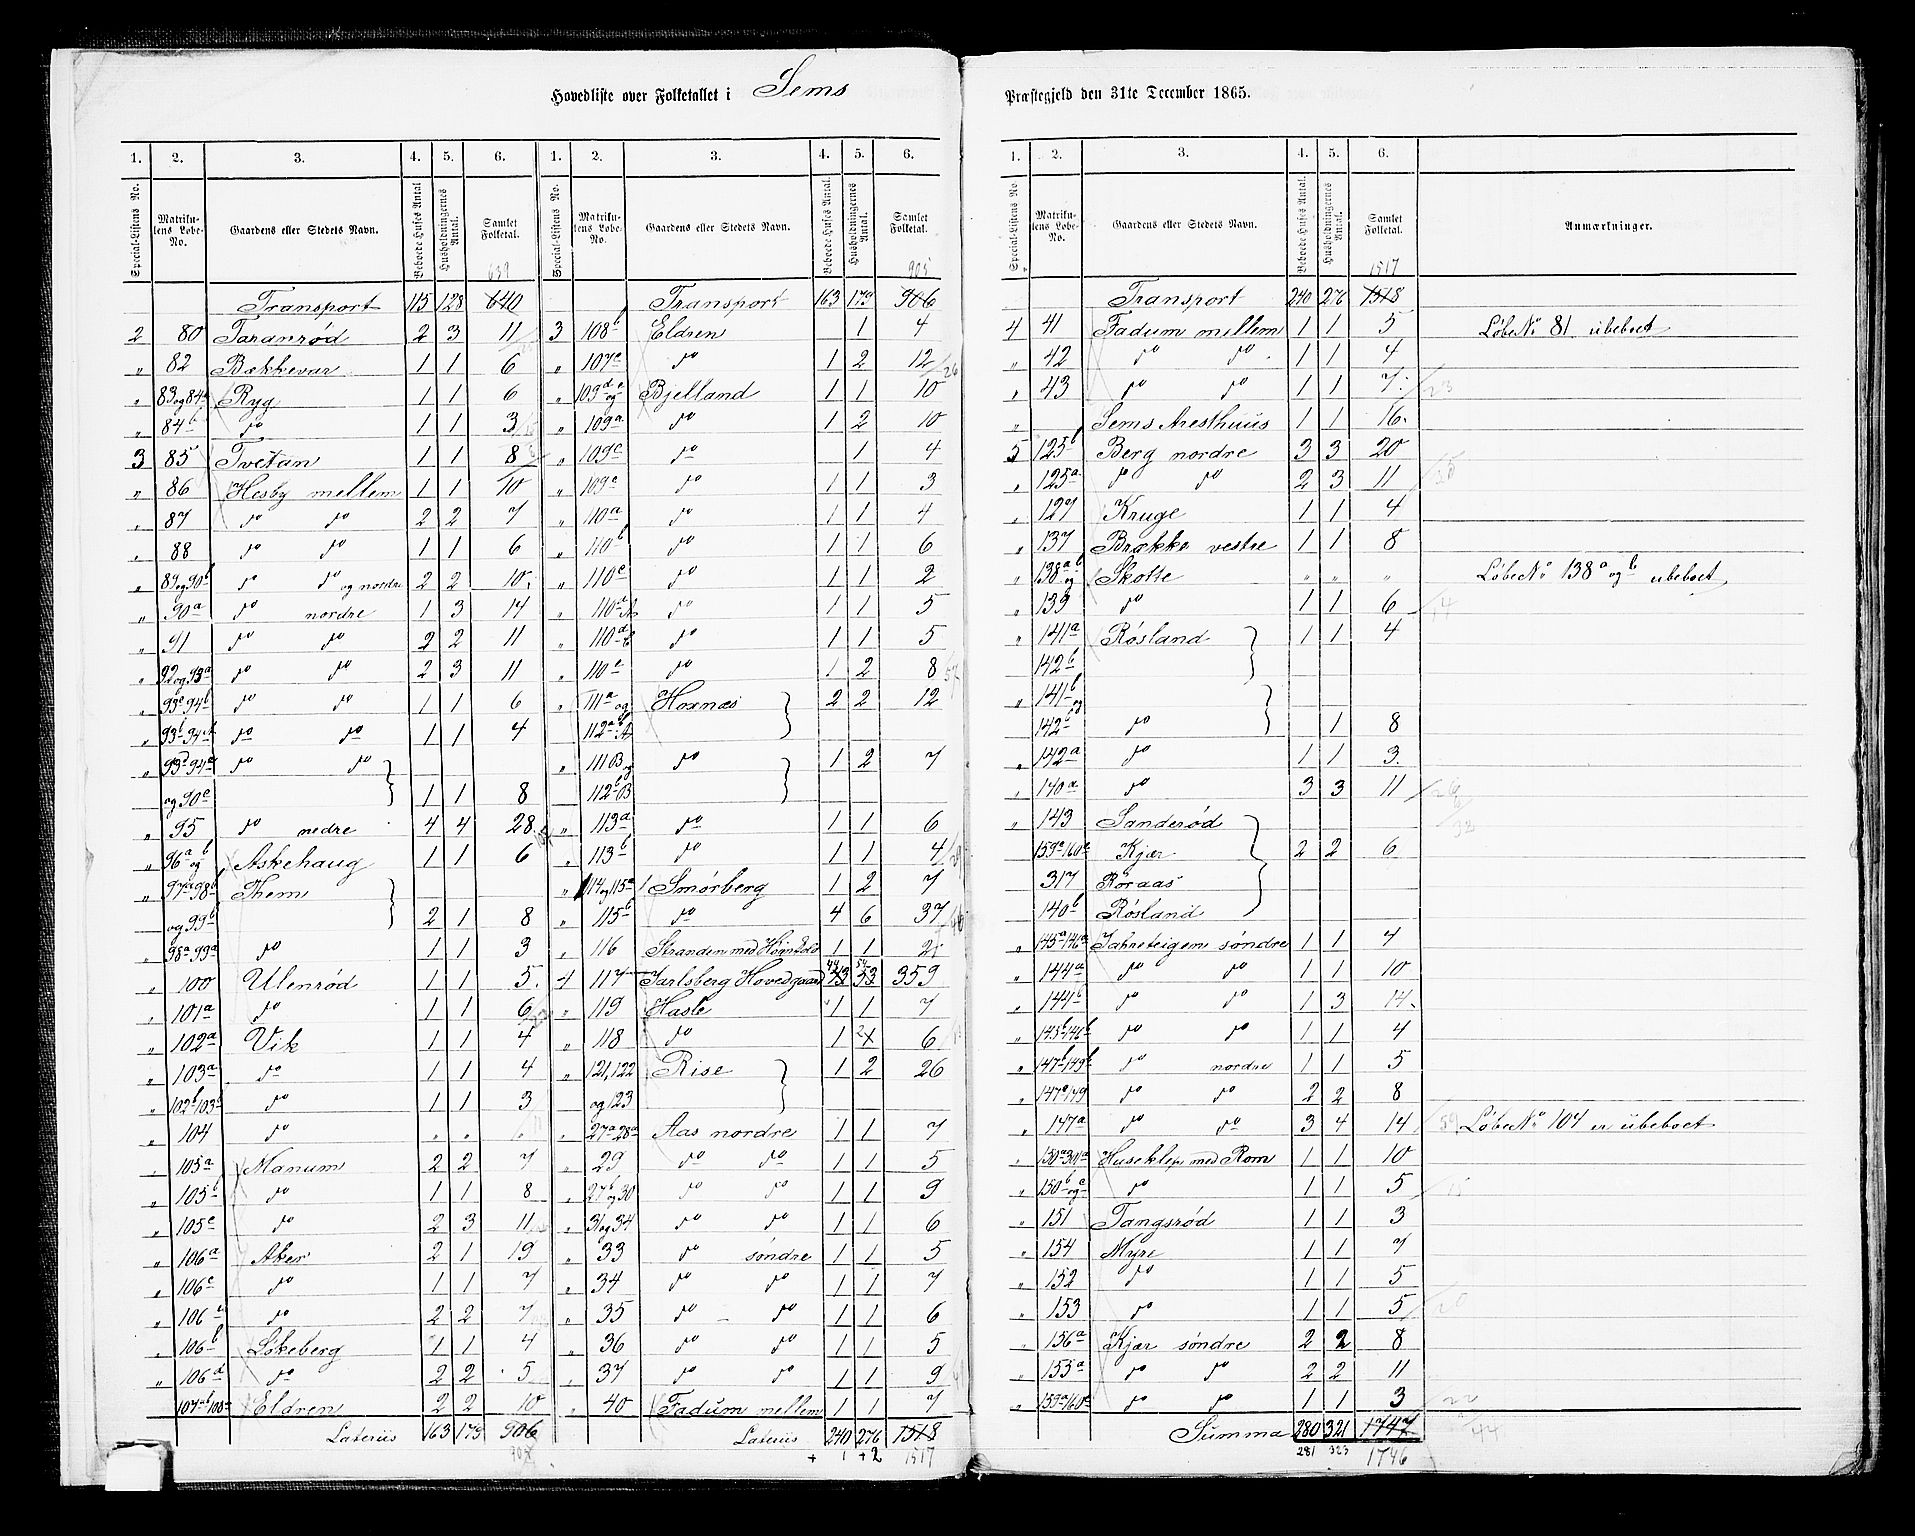 Hovedliste over Folketallet i Sems Præstegjeld den 31te December 1865.
1. 2. 3. 4. 5. 6. 1. 2. 3. 4. 5. 6.
Special-Listens No. Matrikulens Løbe-No. Gaardens eller Stedets Navn. Beboede Huses Antal Husholdningernes Antal. Samlet Folketal. Special-Listens No. Matrikulens Løbe-No. Gaardens eller Stedets Navn. Beboede Huses Antal. Husholdningernes Antal. Samlet Folketal.
639 905
Transport 115 128 640 Transport 163 179 906
2 80 Taranrød 2 3 11 3 108b Eldren 1 4
„ 82 Bækkevar 1 1 6 „ 107a do 1 2 12
„ 83 og 84a Ryg 1 1 6 „ 109d og e Bjelland 1 1 10
„ 84b do 1 1 3 „ 109a do 1 2 10
3 85 Tvetan 1 1 8 „ 109c do 1 4
„ 86 Hesby mellem 1 1 10 „ 109a do 1 1 3
„ 87 do do 2 2 7 „ 110a do 1 1 4
„ 88 do do 1 1 6 „ 110b do 1 1 6
„ 89 og 90b do do og nordre 2 2 10 „ 110c do 1 1 2
„ 90a do nordre 1 3 14 „ 110a do 1 1 5
„ 91 do do 2 2 11 „ 110d do 1 1 5
„ 92 og 93a do do 2 3 11 „ 110e do 1 2 8
„ 93c 94b do do 1 1 6 „ 111a og Hornæs 2 2 12
„ 93b 94 do do 1 1 4 112a b A
„ 93d 94a do do „ 111B og do 1 2 7
og 90c 1 1 8 112b B
„ 95 do nedre 4 4 28 „ 113a do 1 1 6
„ 96a og b Askehaug 1 1 6 „ 113b do 1 1 4
„ 97a 98b Them „ 114 og 115a Smørberg 1 2 7
og 99b 2 1 8 „ 115b do 4 6 37
„ 98a 99a do 1 1 3 „ 116 Stranden med 1 1 2
„ 100 Ulenrød 1 1 5 4 117 Jarlsberg Hovedgaard 43 44 53 54 359
„ 101a do 1 1 6 „ 119 Hasle 1 1 7
„ 102a Vik 1 1 4 „ 118 do 1 2 6
„ 103a do 1 1 4 „ 121, 122 Rise 1 2 26
„ 102b 103b do 1 1 3 og 123
„ 104 do „ „ „ „ 27a 28a Aas nordre 1 1 7
„ 105a Manum 2 2 7 „ 29 do do 1 1 5
„ 105b do 1 1 8 „ 27b og 30 do do 1 1 9
„ 105c do 2 3 11 „ 31 og 34 do do 1 1 6
„ 106a Aker 2 1 19 „ 33 do søndre 1 1 5
„ 106c do 1 1 7 „ 34 do do 1 1 7
„ 106e do 2 2 7 „ 35 do do 1 1 6
„ 106b Løkeberg 1 1 4 „ 36 do do 1 1 5
„ 106d do 2 2 5 „ 37 do do 1 1 9
107b 108a Eldren 2 2 10 „ 40 Fadum mellem 1 1 7
Lateriis 163 179 906 Lateriis 240 276 1518
905 + 1 +2 1517
1. 2. 3. 4. 5. 6.
Special-Listens No. Matrikulens Løbe-No. Gaardens eller Stedets Navn. Beboede Huses Antal. Husholdningernes Antal. Samlet Folketal. Anmærkninger.
1517
Transport 240 276 1518
4 41 Fadum mellem 1 1 5 Løbe No 81 ubeboet
„ 42 do do 1 1 4
„ 43 do do 1 1 7 23
Sems Aresthuus 1 1 16
5 125b Berg nordre 3 3 20
„ 125a do do 2 3 11
„ 127 Kruge 1 1 4
„ 137 Brække vestre 1 1 8
„ 138a og b Skotte „ „ „ Løbe No 138a og b ubeboet
„ 139 do 1 1 6 14
„ 141a Røsland 1 1 4
142b
„ 141b og
142c do 1 8
„ 142a do 1 1 3
„ 140a do 3 3 11 26
„ 143 Sanderød 32
159a 160a Kjær 2 2 6
317 Roraas
140b Røsland
„ 145a 146a Jahreteigen søndre 1 1 4
„ 144a do do 1 1 10
„ 144b do do 1 3 14
„ 145b 146b do do 1 1 4
„ 147b 149b do nordre 1 1 5
„ 147c 149 do do 2 2 8
„ 147a do do 3 4 14 59 Løbe No 104 er ubeboet
„ 150a 301a Huseklep med Rom 1 1 10
„ 150b og c do 1 1 5 15
„ 151 Tangsrød 1 1 3
„ 154 Myre 1 1 7
„ 152 do 1 1 5
„ 153 do 1 1 5 20
„ 156a Kjær søndre 2 2 8
„ 155a do do 2 2 11
„ 159a 160c do do 1 1 3 22
Summa 280 321 1747 44
281 323 1746